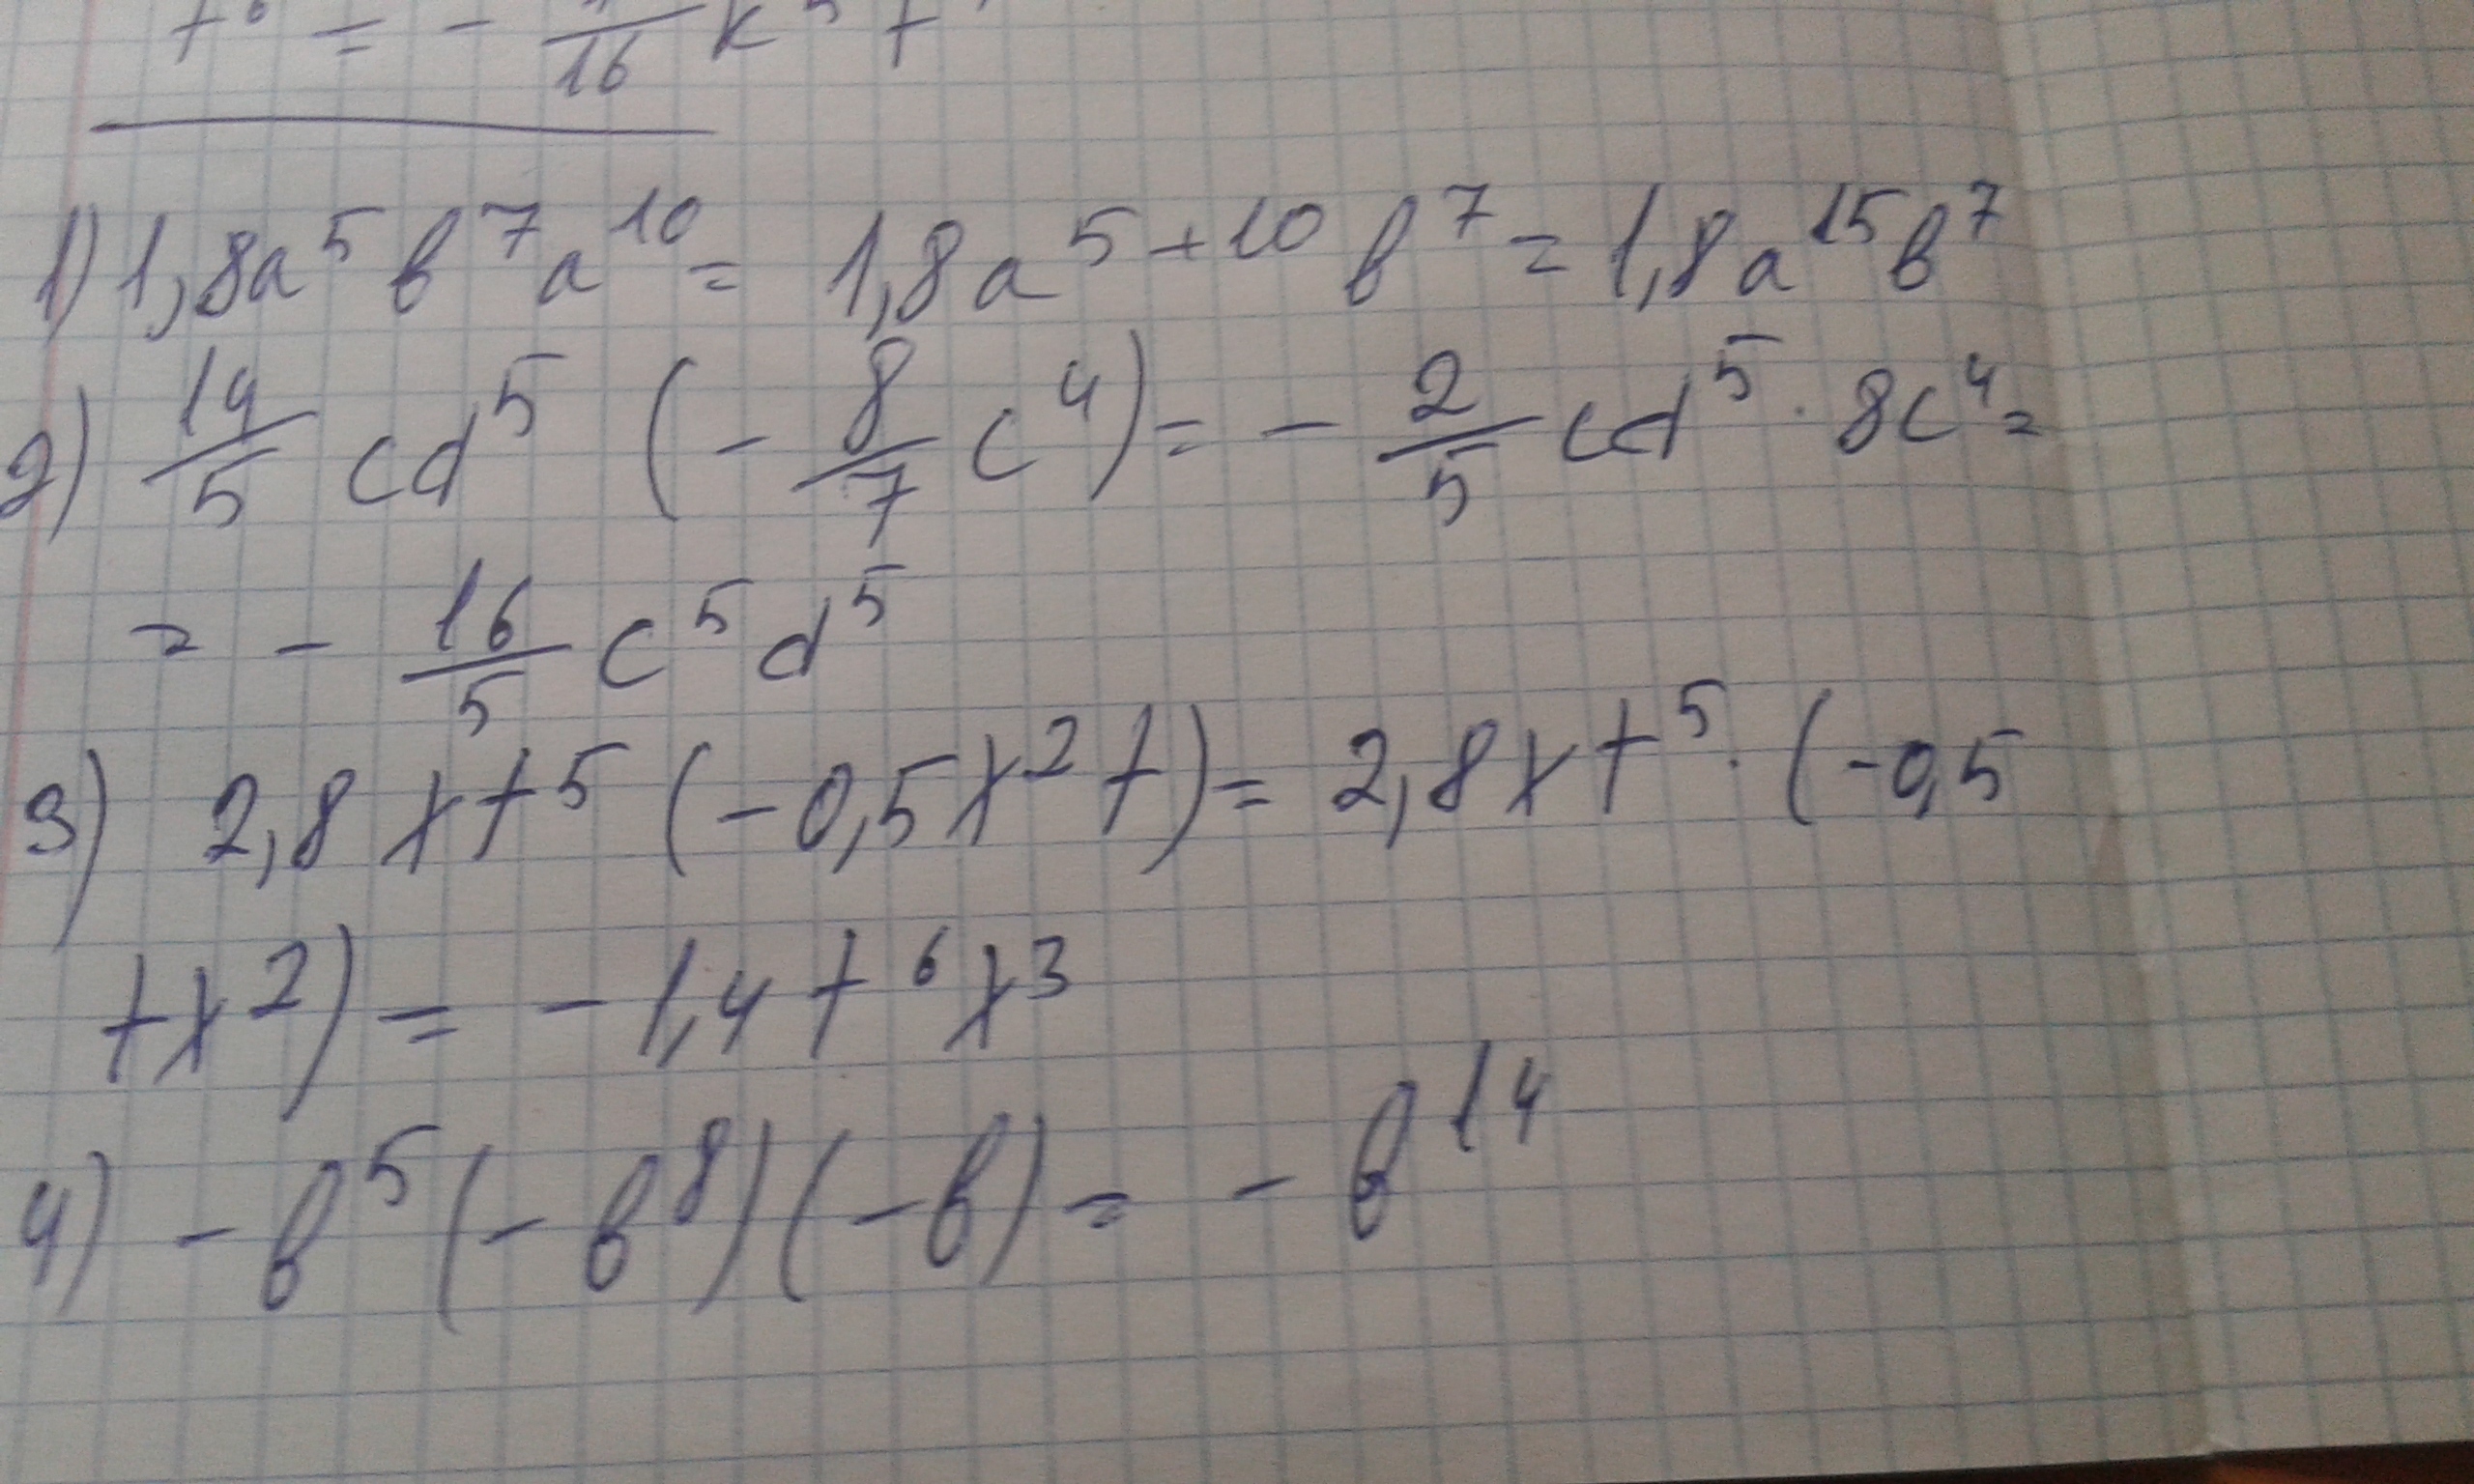 = - /16 k
1) 1,8a⁵b⁷a¹⁰ = 1,8a⁵⁺¹⁰b⁷ = 1,8a¹⁵b⁷
2) 14/5 cd⁵ (- 8/7 c⁴) = - 2/5 cd⁵ · 8c⁴ =
= - 16/5 c⁵d⁵
3) 2,8xt⁵ (-0,5x²t) = 2,8xt⁵ · (-0,5
tx²) = -1,4t⁶x³
4) -b⁵(-b⁸)(-b) = -b¹⁴